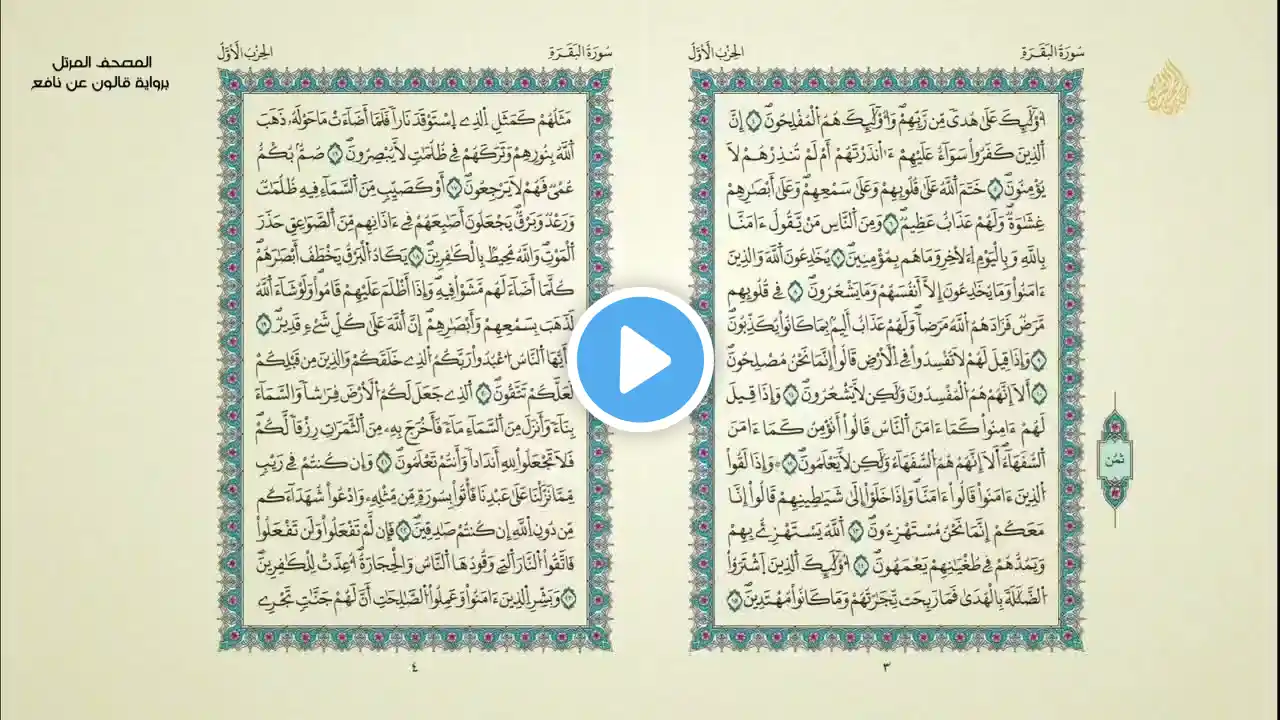 المصحف المرتل
برواية قالون عن نافع
سُورَةُ الْبَقَرَةِ
الحِزْبُ الْأَوَّلُ
أُوْلَٰٓئِكَ عَلَىٰ هُدٗى مِّن رَّبِّهِمْۖ وَأُوْلَٰٓئِكَ هُمُ اُ۬لْمُفْلِحُونَۖ ٤ إِنَّ
اَ۬لذِينَ كَفَرُواْ سَوَآءٌ عَلَيْهِمْۖ ءَآنذَرْتَهُمْ أَمْ لَمْ تُنذِرْهُمْ لَا
يُؤْمِنُونَۖ ٥ خَتَمَ اَ۬للَّهُ عَلَىٰ قُلُوبِهِمْ وَعَلَىٰ سَمْعِهِمْۖ وَعَلَىٰ أَبْصَٰرِهِمْ
غِشَٰوَةٞۖ وَلَهُمْ عَذَابٌ عَظِيمٞۖ ٦ وَمِنَ اَ۬لنَّاسِ مَنْ يَّقُولُ ءَامَنَّا
بِاللَّهِ وَبِالْيَوْمِ اِ۬لْأٓخِرِ وَمَا هُم بِمُؤْمِنِينَۖ ٧ يُخَٰدِعُونَ اَ۬للَّهَ وَالذِينَ
ءَامَنُواْ وَمَا يُخَٰدِعُونَ إِلَّا أَنفُسَهُمْ وَمَا يَشْعُرُونَۖ ٨ فِے قُلُوبِهِم
مَّرَضٞ فَزَادَهُمُ اُ۬للَّهُ مَرَضاٗۖ وَلَهُمْ عَذَابٌ أَلِيمُۢ بِمَا كَانُواْ يُكَذِّبُونَۖ
٩ وَإِذَا قِيلَ لَهُمْ لَا تُفْسِدُواْ فِے اِ۬لْأَرْضِ قَالُواْ إِنَّمَا نَحْنُ مُصْلِحُونَۖ
١٠ أَلَا إِنَّهُمْ هُمُ اُ۬لْمُفْسِدُونَ وَلَٰكِن لَّا يَشْعُرُونَۖ ١١ وَإِذَا قِيلَ
لَهُمْ ءَامِنُواْ كَمَا ءَامَنَ اَ۬لنَّاسُ قَالُواْ أَنُؤْمِنُ كَمَا ءَامَنَ
اَ۬لسُّفَهَآءُۖ أَلَا إِنَّهُمْ هُمُ اُ۬لسُّفَهَآءُ وَلَٰكِن لَّا يَعْلَمُونَۖ ١٢ ۞وَإِذَا لَقُواْ
اُ۬لذِينَ ءَامَنُواْ قَالُواْ ءَامَنَّاۖ وَإِذَا خَلَوْاْ اِلَىٰ شَيَٰطِينِهِمْ قَالُواْ إِنَّا
مَعَكُمْ إِنَّمَا نَحْنُ مُسْتَهْزِءُونَۖ ١٣ اَ۬للَّهُ يَسْتَهْزِۓُ بِهِمْ
وَيَمُدُّهُمْ فِے طُغْيَٰنِهِمْ يَعْمَهُونَۖ ١٤ أُوْلَٰٓئِكَ اَ۬لذِينَ اَ۪شْتَرَوُاْ
اُ۬لضَّلَٰلَةَ بِالْهُدَىٰ فَمَا رَبِحَت تِّجَٰرَتُهُمْ وَمَا كَانُواْ مُهْتَدِينَۖ ١٥
ثُمُن
٣
سُورَةُ الْبَقَرَةِ
الحِزْبُ الْأَوَّلُ
مَثَلُهُمْ كَمَثَلِ اِ۬لذِے اِ۪سْتَوْقَدَ نَاراٗ فَلَمَّا أَضَآءَتْ مَا حَوْلَهُۥ ذَهَبَ
اَ۬للَّهُ بِنُورِهِمْ وَتَرَكَهُمْ فِے ظُلُمَٰتٖ لَّا يُبْصِرُونَۖ ١٦ صُمُّۢ بُكْمٌ
عُمْيٞ فَهُمْ لَا يَرْجِعُونَۖ ١٧ أَوْ كَصَيِّبٖ مِّنَ اَ۬لسَّمَآءِ فِيهِ ظُلُمَٰتٞ
وَرَعْدٞ وَبَرْقٞۖ يَجْعَلُونَ أَصَٰبِعَهُمْ فِے ءَاذَانِهِم مِّنَ اَ۬لصَّوَٰعِقِ حَذَرَ
اَ۬لْمَوْتِۖ وَاللَّهُ مُحِيطُۢ بِالْكَٰفِرِينَۖ ١٨ يَكَادُ اُ۬لْبَرْقُ يَخْطَفُ أَبْصَٰرَهُمْۖ
كُلَّمَا أَضَآءَ لَهُم مَّشَوْاْ فِيهِۖ وَإِذَا أَظْلَمَ عَلَيْهِمْ قَامُواْۖ وَلَوْ شَآءَ اَ۬للَّهُ
لَذَهَبَ بِسَمْعِهِمْ وَأَبْصَٰرِهِمْۖ إِنَّ اَ۬للَّهَ عَلَىٰ كُلِّ شَےْءٖ قَدِيرٞۖ ١٩
يَٰأَيُّهَا اَ۬لنَّاسُ اُ۟عْبُدُواْ رَبَّكُمُ اُ۬لذِے خَلَقَكُمْ وَالذِينَ مِن قَبْلِكُمْ
لَعَلَّكُمْ تَتَّقُونَۖ ٢٠ اَ۬لذِے جَعَلَ لَكُمُ اُ۬لْأَرْضَ فِرَٰشاٗ وَالسَّمَآءَ
بِنَآءٗ وَأَنزَلَ مِنَ اَ۬لسَّمَآءِ مَآءٗ فَأَخْرَجَ بِهِۦ مِنَ اَ۬لثَّمَرَٰتِ رِزْقاٗ لَّكُمْۖ
فَلَا تَجْعَلُواْ لِلهِ أَندَاداٗ وَأَنتُمْ تَعْلَمُونَۖ ٢١ وَإِن كُنتُمْ فِے رَيْبٖ
مِّمَّا نَزَّلْنَا عَلَىٰ عَبْدِنَا فَأْتُواْ بِسُورَةٖ مِّن مِّثْلِهِۦ وَادْعُواْ شُهَدَآءَكُم
مِّن دُونِ اِ۬للَّهِ إِن كُنتُمْ صَٰدِقِينَۖ ٢٢ فَإِن لَّمْ تَفْعَلُواْ وَلَن تَفْعَلُواْ
فَاتَّقُواْ اُ۬لنَّارَ اَ۬لتِے وَقُودُهَا اَ۬لنَّاسُ وَالْحِجَارَةُۖ أُعِدَّتْ لِلْكَٰفِرِينَۖ
٢٣ وَبَشِّرِ اِ۬لذِينَ ءَامَنُواْ وَعَمِلُواْ اُ۬لصَّٰلِحَٰتِ أَنَّ لَهُمْ جَنَّٰتٖ تَجْرِے
٤